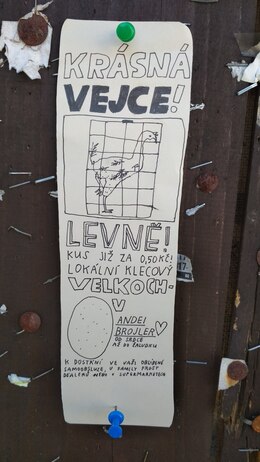 KRÁSNÁ
VEJCE!
LEVNĚ!
KUS JIŽ ZA 0,50 KČ!
LOKÁLNÍ KLECOVÝ
VELKOCH-
V
ANDEI
BROJLER
OD SRDCE
AŽ DO ŽALUDKU
K DOSTÁNÍ VE VAŠÍ OBLÍBENÉ
SAMOOBSLUZE, U FAMILY FROST
DEALERŮ NEBO V SUPERMARKETECH